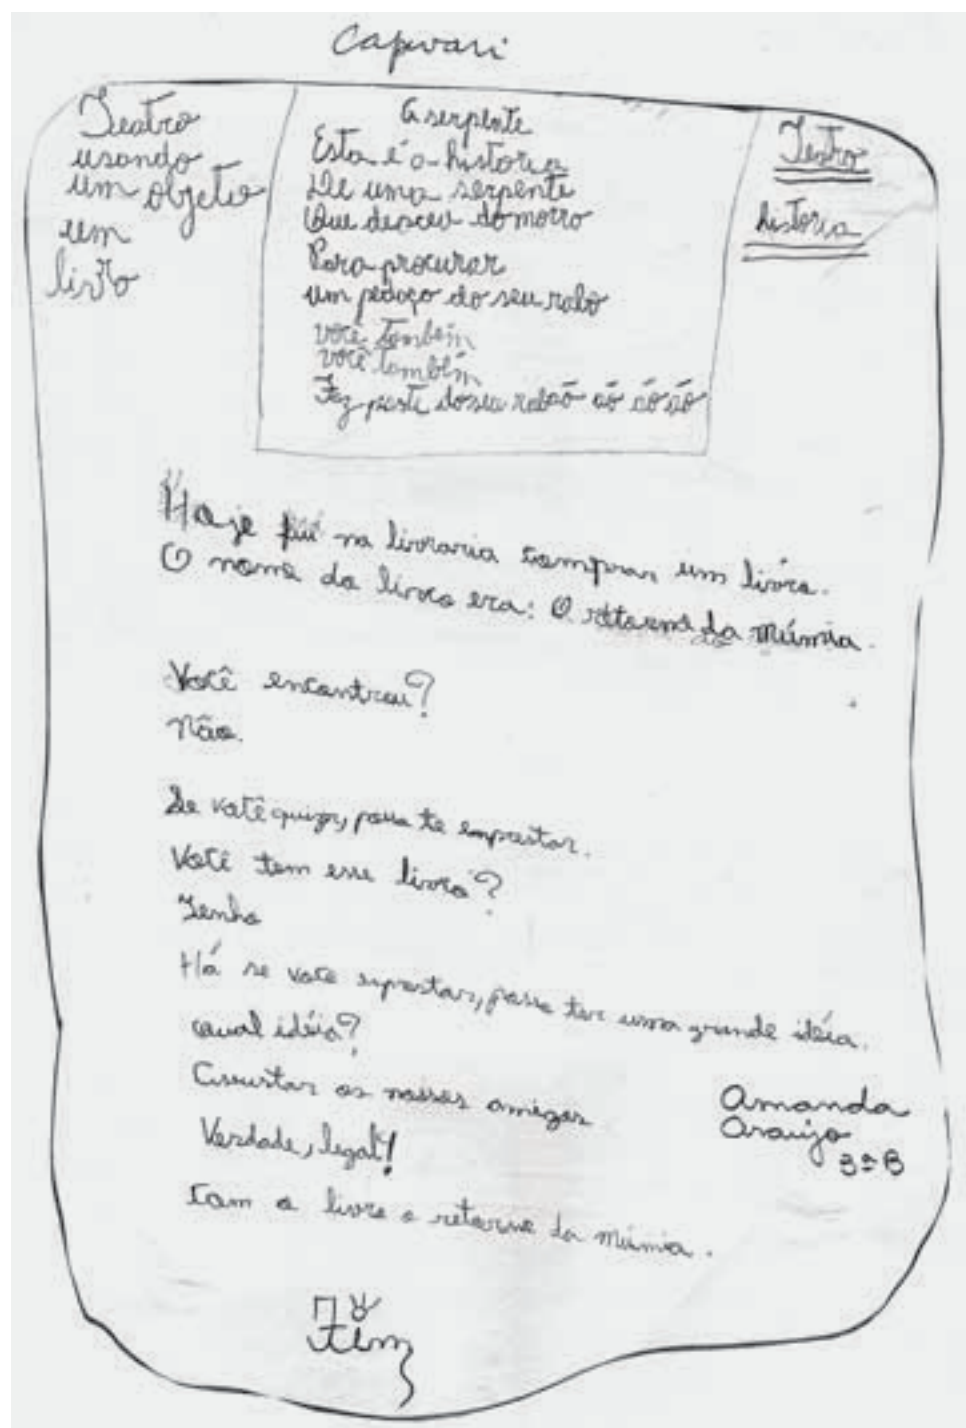 Capivari
Teatro
usando
um objeto
um
livro
A serpente
Esta é a historia
De uma serpente
Que desceu do morro
Para procurar
um pedaço do seu rabo
você também
você também
Faz parte do seu rabão ão ão ão
Texto
historia
Hoje fui na livraria comprar um livro.
O nome do livro era: O retorno da múmia.
Você encontrou?
Não.
Se você quizer, posso te emprestar.
Você tem esse livro?
Tenho
Há se você emprestar, posso ter uma grande idéia.
qual idéia?
Assustar os nossos amigos
Verdade, legal!
Com o livro o retorno da múmia.
Amanda
Araujo
3ª B
Fim